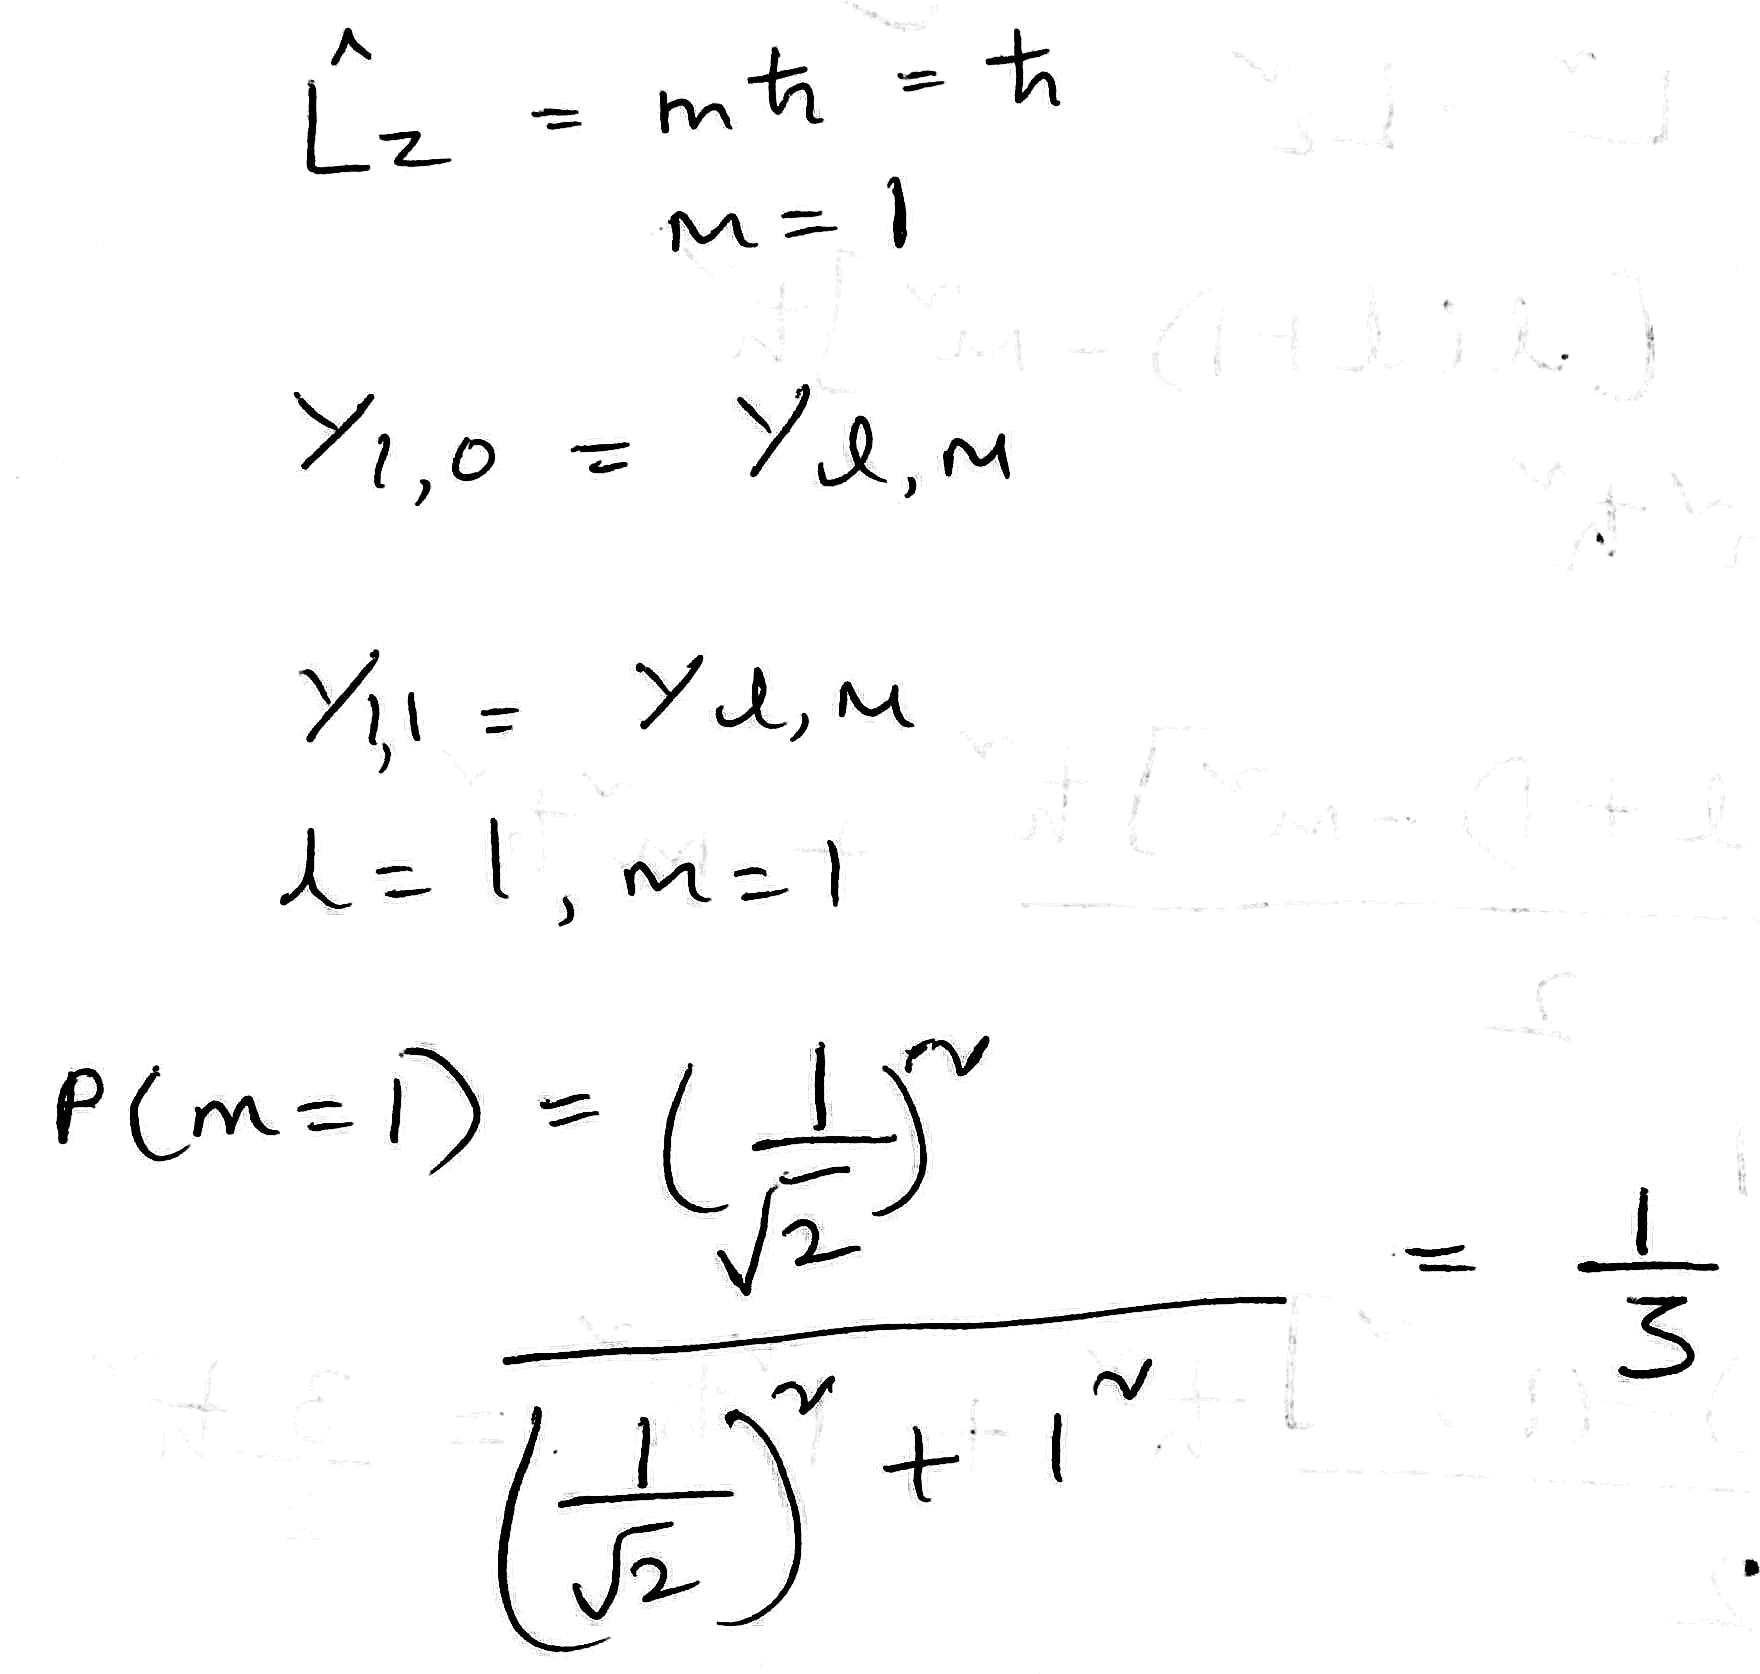 L̂_z = mħ = ħ
m = 1
Y_{1,0} = Y_{l,m}
Y_{1,1} = Y_{l,m}
l = 1, m = 1
P(m=1) = (1/√2)² / ((1/√2)² + 1²) = 1/3